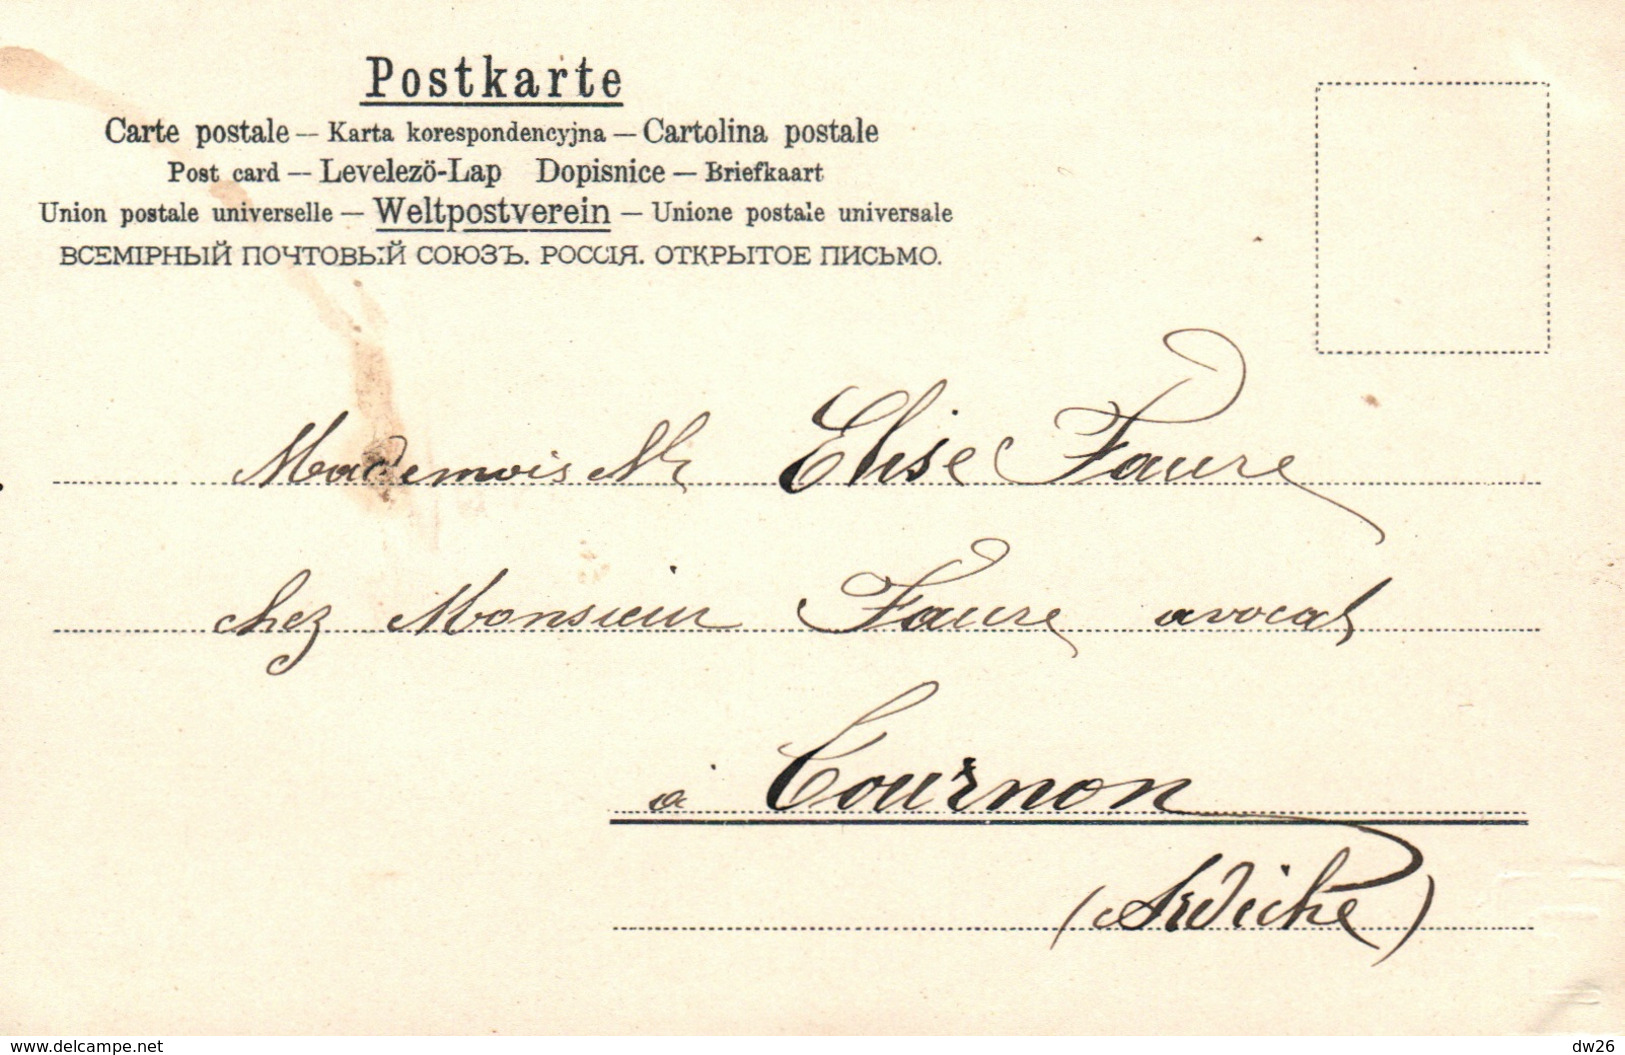 Postkarte
Carte postale — Karta korespondencyjna — Cartolina postale
Post card — Levelezö-Lap Dopisnice — Briefkaart
Union postale universelle — Weltpostverein — Unione postale universale
ВСЕМІРНЫЙ ПОЧТОВЫЙ СОЮЗЪ. РОССІЯ. ОТКРЫТОЕ ПИСЬМО.
Mademoiselle Elise Faure
chez Monsieur Faure avocat
à Tournon
(Ardèche)
www.delcampe.net
dw26